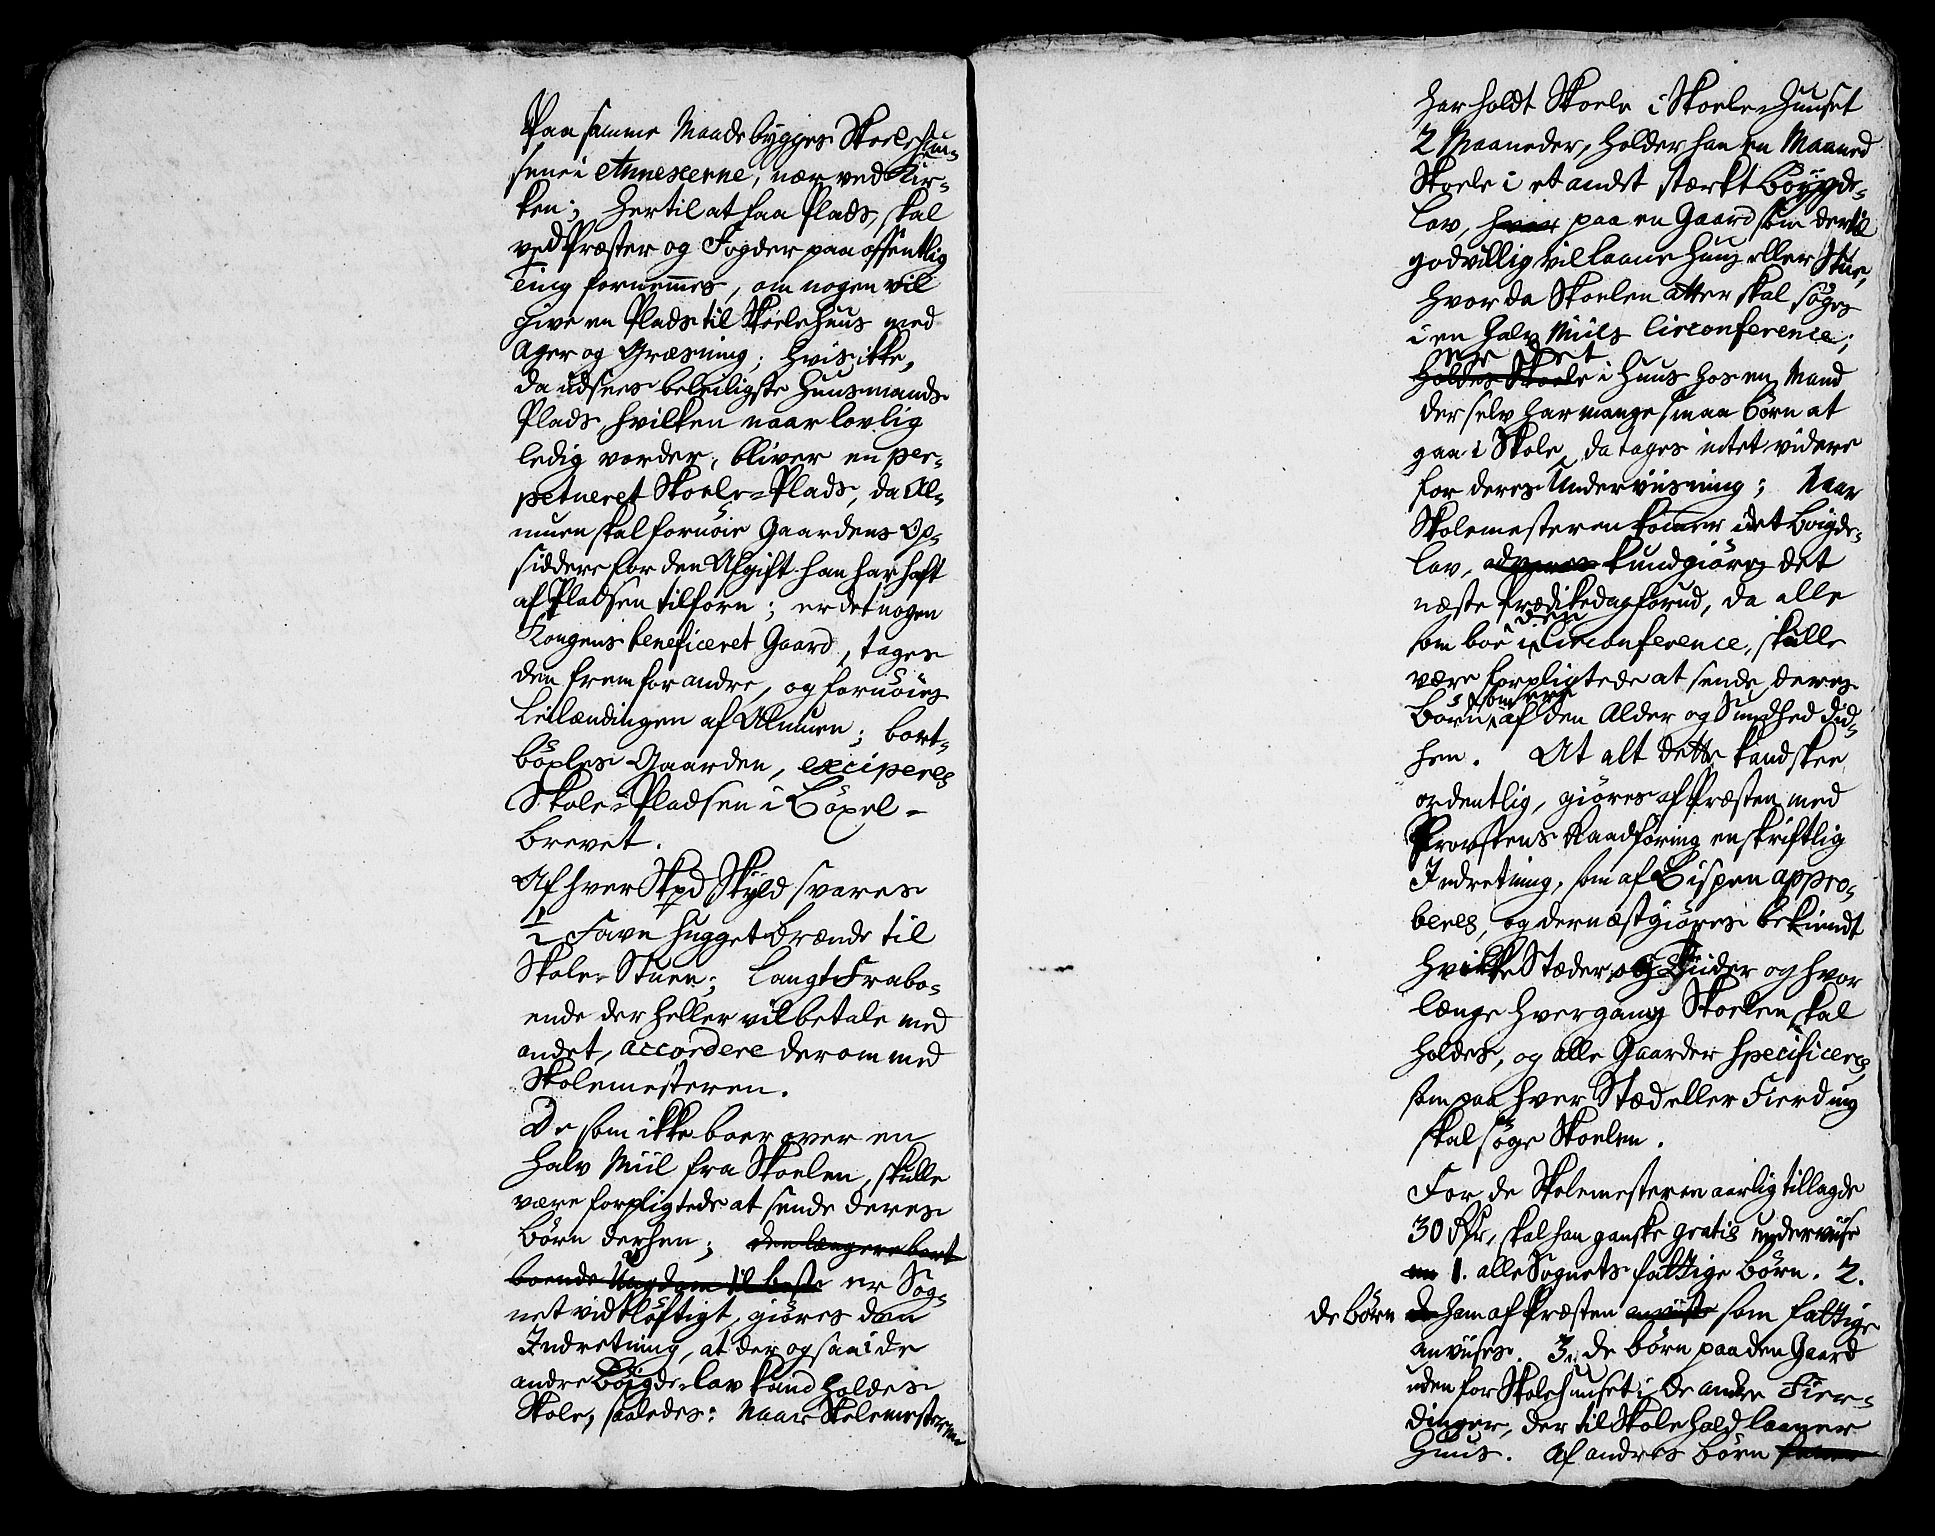 Paa samme Maade bygges Skoelehuu-
sene i Annexerne, nær ved Kir-
ken; hertil at faa Plads, skal
ved Præster og Fogder paa offentlig
Ting fornemmes, om nogen vil
give en Plads til Skoelehuus med
Ager og Græsning; hvis ikke,
da udsees beleiligste Huusmands
Plads, hvilken naar lovlig
ledig vorder, bliver en per-
petueret Skoele-Plads, da Al-
muen skal fornøie Gaardens Op-
siddere for den Afgift han har haft
af Pladsen tilforn; er det nogen
Kongens beneficeret Gaard, tages
den frem for andre, og fornøies
Leilændingen af Almuen; bort-
böxles Gaarden, exciperes
Skole-Pladsen i Böxel-
brevet.
Af hver Skpd Skyld svares
1/2 Favn hugget Brænde til
Skole-Stuen; langt Frabo-
ende der heller vil betale med
andet, accordere derom med
Skolemesteren.
De som ikke boer over en
halv Miil fra Skoelen, skulle
være forpligtede at sende deres
Börn derhen; den længere bort
boende Ungdom til beste er Sog-
net vidtløftigt, giöres den
Indretning, at der ogsaa i de
andre Böigde-lav kand holdes
Skole, saaledes: Naar Skolemesteren
har holdt Skoele i Skoele-Huuset
2 Maaneder, holder han en Maaned
Skoele i et andet stærkt Böygde-
lav, paa en Gaard som dertil
godvillig vil laane Huus eller Stue,
hvor da Skoelen atter skal söges
i en halv Miils Circonference;
er det
holdes Skoele i Huus hos en Mand
der selv har mange smaa Börn at
gaa i Skole, da tages intet videre
for deres Underviisning; Naar
Skolemesteren kommer i det Böigde-
lav, kundgiöres det
næste Prædikedag forud, da alle
den
som boe i Circonference, skulle
være forpligtede at sende deres
som ere
Börn af den Alder og Sundhed did-
hen. At alt dette kand skee
ordentlig, giöres af Præsten med
Provstens Raadföring en skriftlig
Indretning, som af Bispen appro-
beres, og dernæst giöres bekiendt
hvilke Stæder, og Tiider og hvor
længe hver gang Skoelen skal
holdes, og alle Gaarder specificeres,
som paa hver Stæd eller Fierding
skal söge Skoelen.
For de Skolemesteren aarlig tillagde
30 Rdr, skal han ganske gratis underviise
1. alle Sognets fattige Börn. 2.
de Börn ham af Præsten anviiste som fattige
anviises. 3. de Börn paa den Gaard
uden for Skolehuuset i de andre Fier-
dinger, der til Skolehold laaner
Huus. Af andres Börn